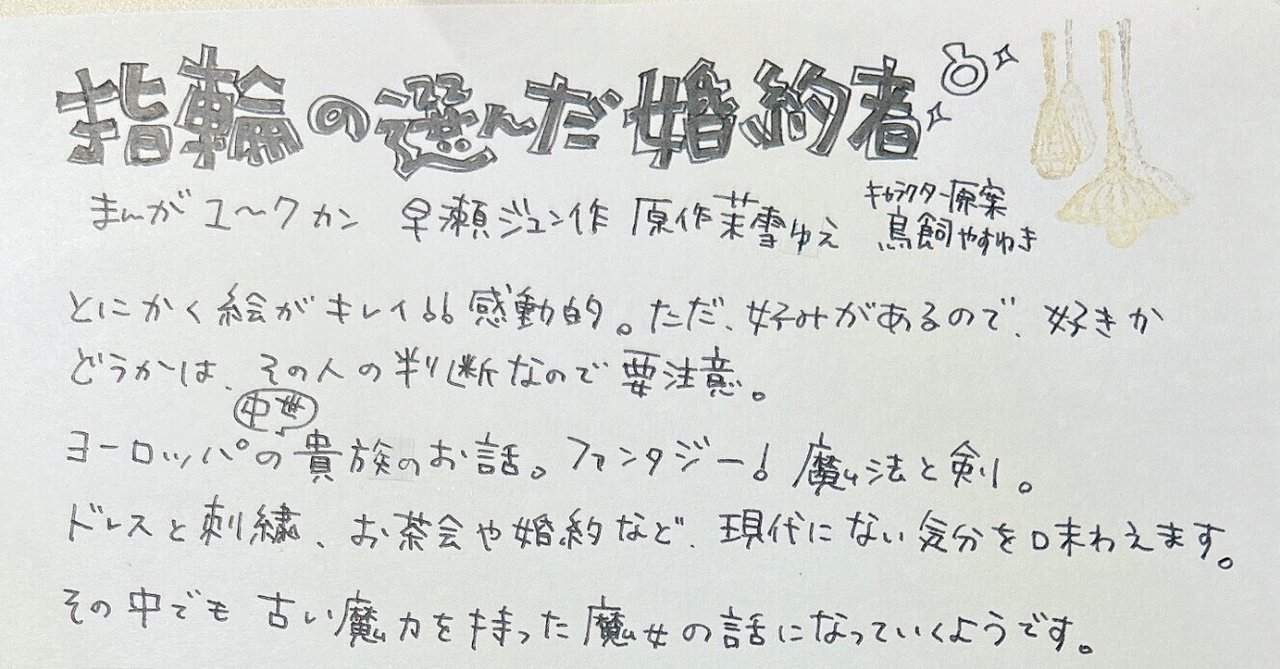 指輪の選んだ婚約者
まんが ユ〜クカン 早瀬ジュン作 原作 茉雪ゆえ キャラクター原案 鳥飼やすゆき
とにかく絵がキレイ!! 感動的。ただ、好みがあるので、好きか
どうかは、その人の判断なので要注意。
中世
ヨーロッパの貴族のお話。ファンタジー! 魔法と剣。
ドレスと刺繍、お茶会や婚約など、現代にない気分を味わえます。
その中でも古い魔力を持った魔女の話になっていくようです。